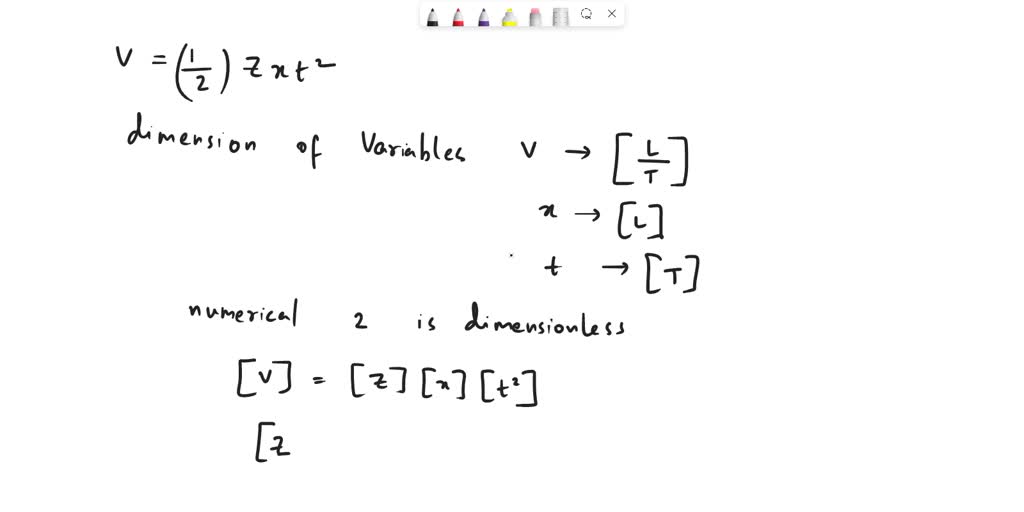 V = (1/2) Z x t²
dimension of Variables V → [L/T]
x → [L]
t → [T]
numerical 2 is dimensionless
[V] = [Z] [x] [t²]
[Z